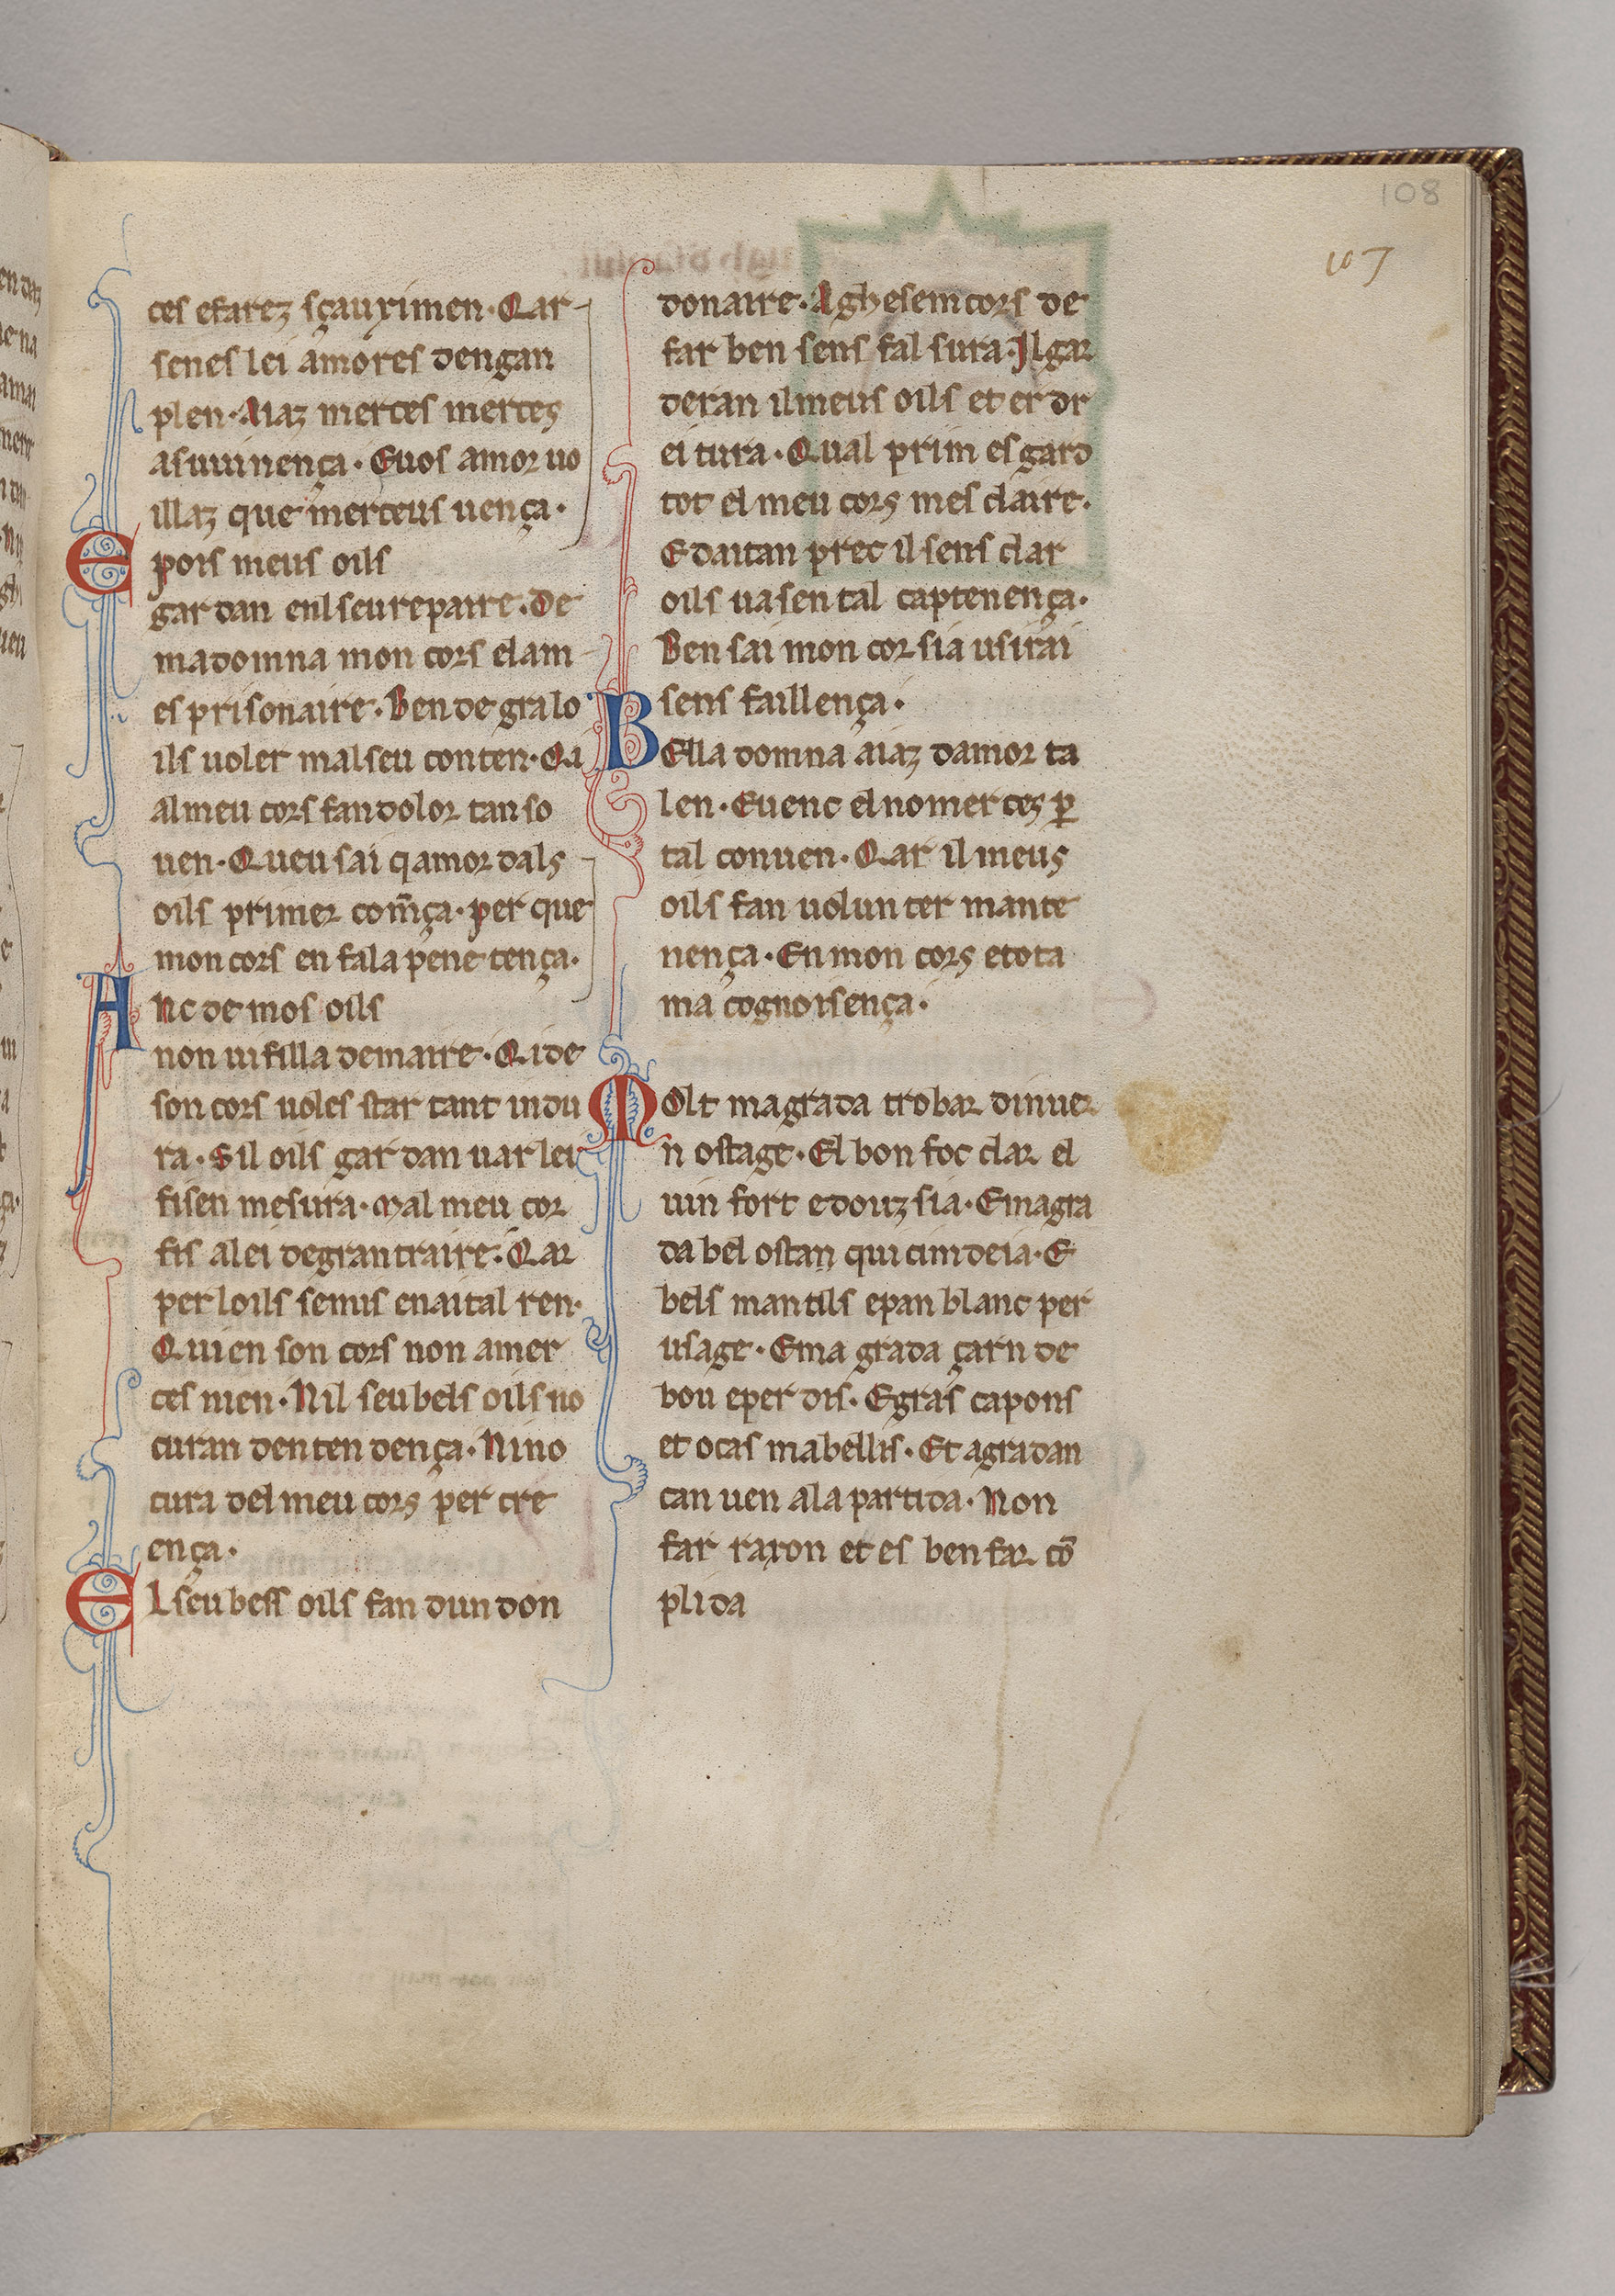 108
107
ces efarez sçauximen. Qar
senes lei amores dengan
plen. Aiaz merces merces
asuuinença. Euos amor uo
illaz que merceus uença.
E pois meus oils
gardan enl seu repaire. De
madomna mon cors elam
es prisonaire. Ben degra lo
ils uoler mal seu conten. Qi
al meu cors fan dolor tan so
uen. Queu sai q amor dals
oils primer com̅ça. per que
mon cors en fa la penetença.
Anc de mos oils
non ui filla demaire. Qi de
son cors uoles star tant in du
ra. Sil oils gardan uar lei
fisen mesura. Mal meu cor
fis a lei de gran traire. Qar
per loils semus enaital ren.
Qui en son cors non a mer
ces nien. Nil seu bels oils no
curan dentendença. Ni no
cura del meu cors per cre
ença.
El seu bess oils fan dun don
donaire. A ghesem cors de
far ben sens falsura. Il gar
deran il meus oils et er dr
eitura. Qual prim esgard
tot el meu cors mesclaire.
E daitan prec il sens clar
oils uasen tal captenença.
Ben sai mon cor sia usirai
sens faillença.
Bella domna aiaz damor ta
len. Euenc el no merces p̲
tal conuen. Qar il meus
oils fan uolunter mante
nença. En mon cors e tota
ma cognoisença.
Molt magrada trobar dinuer
n ostage. El bon foc clar el
uin fort e douz sia. Emagra
da bel ostan qui cimdeia. E
bels mantils epan blanc per
usage. Ema grada çarn de
bou eperdis. Egras capons
et ocas mabellis. Et agradan
can uen ala partida. Non
far raxon et es ben far. co̅
plida